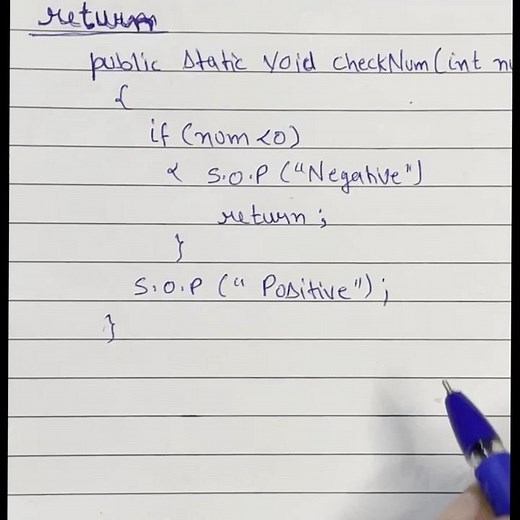 return
public static void checkNum(int nu
{
if (num<0)
{ S.O.P ("Negative")
return;
}
S.O.P (" Positive");
}